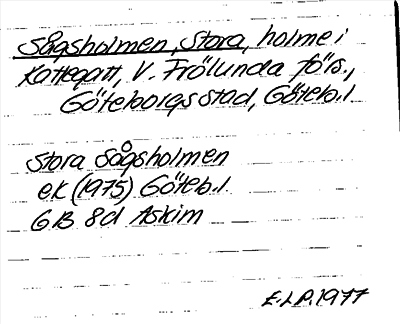 Sågsholmen, Stora, holme i
Kattegatt, V. Frölunda förs.,
Göteborgs stad, Göteb. l
Stora Sågsholmen
ek (1975) Göteb. l.
GB 8d Askim
E.L.P. 1977